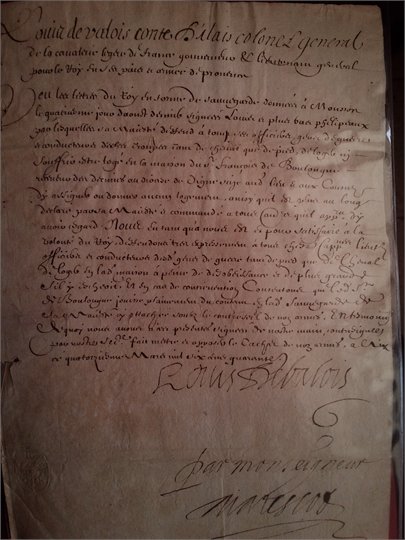 Louis de valois conte D'alais colonel general
de la cavalerie legere de france gouverneur & lieutenant general
pour le Roy en ses païs & armee de provence
Veu les lettres du Roy en forme de sauvegarde données à
le quatriesme jour daoust dernier signées Louis et plus bas phelipeaux
par lesquelles sa Majesté deffend à tous ses officiers, gens de guerre
conducteurs de tant de cheval que de pied, de loger ny
souffrir estre logé en la maison du Sr françois de Boulogne
des deniers au de Digne
dy assigner ou donner aucun logement, ainsy quil est plus au long
declaré par sa Majesté & commandé à tous quil
avoir esgard Nous En tant qua nous est et pour satisfaire à la
volonté du Roy deffendons tres expressement à tous
officiers et conducteurs desd gens de guerre tant de pied que de cheval
de loger en lad maison à peine de desobeissance et de plus grande
Sil y eschoit Et en cas de contrevention Consentons que led Sr
de Boulogne jouisse plainement du contenu en lad Sauvegarde de
Sa Majesté cy attachée soubz le contrescel de noz armes, En tesmoing
dequoy nous avons ces presentes signées de nostre main, contresignées
par nostre Secre. fait mettre et apposer le Cachet de noz armes, à Aix
ce quatorziesme Mars mil six cens quarante
Louis De valois
par monseigneur